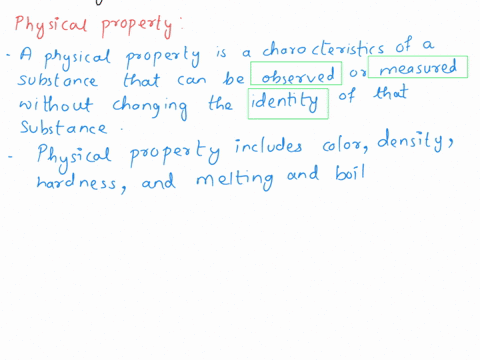 Physical property:
- A physical property is a characteristics of a
substance that can be observed or measured
without changing the identity of that
Substance.
- Physical property includes color, density,
hardness, and melting and boil